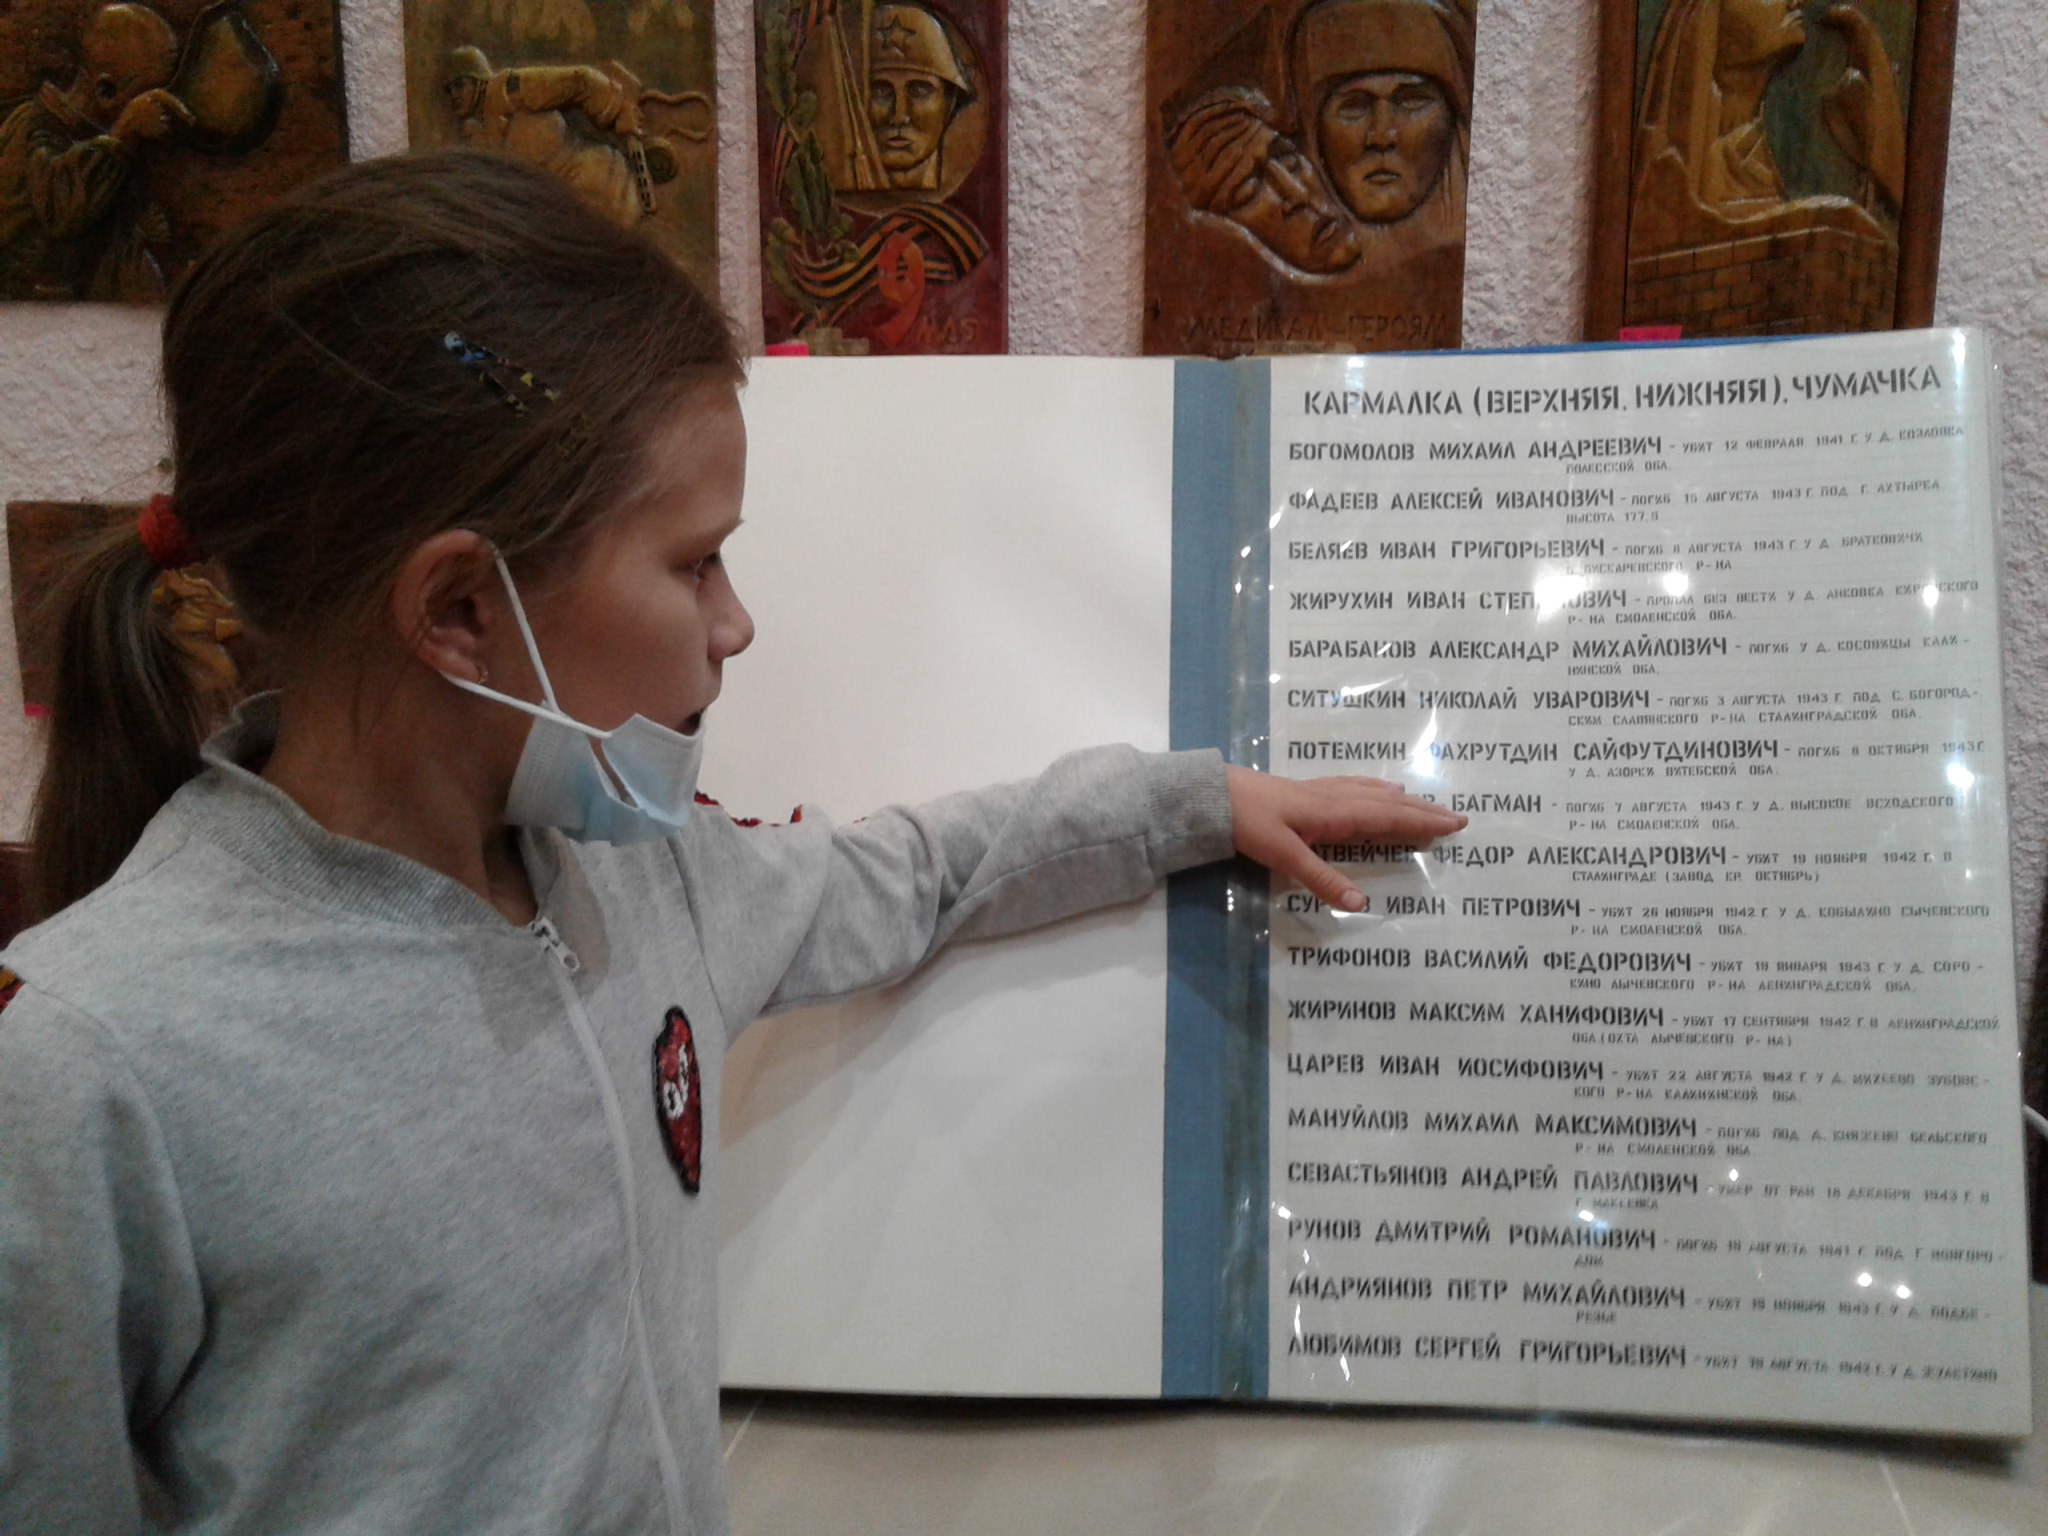 9
МАЯ
МЕДИКАМ-ГЕРОЯМ
КАРМАЛКА (ВЕРХНЯЯ, НИЖНЯЯ), ЧУМАЧКА
БОГОМОЛОВ МИХАИЛ АНДРЕЕВИЧ - УБИТ 12 ФЕВРАЛЯ 1941 Г. У Д. КОЗЛОВКА
ПОЛЕССКОЙ ОБЛ.
ФАДЕЕВ АЛЕКСЕЙ ИВАНОВИЧ - ПОГИБ 15 АВГУСТА 1943 Г. ПОД Г. АХТЫРКА
ВЫСОТА 177,5
БЕЛЯЕВ ИВАН ГРИГОРЬЕВИЧ - ПОГИБ 8 АВГУСТА 1943 Г. У Д. БРАТКОВИЧИ
Б. ПИСКАРЕВСКОГО Р-НА
ЖИРУХИН ИВАН СТЕПАНОВИЧ - ПРОПАЛ БЕЗ ВЕСТИ У Д. АНКОВКА КИРОВСКОГО
Р-НА СМОЛЕНСКОЙ ОБЛ.
БАРАБАНОВ АЛЕКСАНДР МИХАЙЛОВИЧ - ПОГИБ У Д. КОСОВИЦЫ КАЛИ-
НИНСКОЙ ОБЛ.
СИТУШКИН НИКОЛАЙ УВАРОВИЧ - ПОГИБ 3 АВГУСТА 1943 Г. ПОД С. БОГОРОД-
СКИМ СЛАВЯНСКОГО Р-НА СТАЛИНГРАДСКОЙ ОБЛ.
ПОТЕМКИН ФАХРУТДИН САЙФУТДИНОВИЧ - ПОГИБ 8 ОКТЯБРЯ 1943 Г.
У Д. АЗОРКИ ВИТЕБСКОЙ ОБЛ.
БАГМАН - ПОГИБ 7 АВГУСТА 1943 Г. У Д. ВЫСОКОЕ ВСХОДСКОГО
Р-НА СМОЛЕНСКОЙ ОБЛ.
МАТВЕЙЧЕВ ФЕДОР АЛЕКСАНДРОВИЧ - УБИТ 19 НОЯБРЯ 1942 Г. В
СТАЛИНГРАДЕ (ЗАВОД КР. ОКТЯБРЬ)
ИВАН ПЕТРОВИЧ - УБИТ 26 НОЯБРЯ 1942 Г. У Д. КОБЫЛИНО СЫЧЕВСКОГО
Р-НА СМОЛЕНСКОЙ ОБЛ.
ТРИФОНОВ ВАСИЛИЙ ФЕДОРОВИЧ - УБИТ 19 ЯНВАРЯ 1943 Г. У Д. СОРО-
КИНО ЛЫЧЕВСКОГО Р-НА ЛЕНИНГРАДСКОЙ ОБЛ.
ЖИРИНОВ МАКСИМ ХАНИФОВИЧ - УБИТ 17 СЕНТЯБРЯ 1942 Г. В ЛЕНИНГРАДСКОЙ
ОБЛ. (ОХТА ЛЫЧЕВСКОГО Р-НА)
ЦАРЕВ ИВАН ИОСИФОВИЧ - УБИТ 22 АВГУСТА 1942 Г. У Д. МИХЕЕВО ЗУБОВС-
КОГО Р-НА КАЛИНИНСКОЙ ОБЛ.
МАНУЙЛОВ МИХАИЛ МАКСИМОВИЧ - ПОГИБ ПОД Д. КНЯЖЕНО БЕЛЬСКОГО
Р-НА СМОЛЕНСКОЙ ОБЛ
СЕВАСТЬЯНОВ АНДРЕЙ ПАВЛОВИЧ - УМЕР ОТ РАН 18 ДЕКАБРЯ 1943 Г. В
Г. МАКЕЕВКА
РУНОВ ДМИТРИЙ РОМАНОВИЧ - ПОГИБ 18 АВГУСТА 1941 Г. ПОД Г. НОВГОРО-
ДОМ
АНДРИЯНОВ ПЕТР МИХАЙЛОВИЧ - УБИТ 15 НОЯБРЯ 1943 Г. У Д. ПОДБЕ-
РЕЗЬЕ
ЛЮБИМОВ СЕРГЕЙ ГРИГОРЬЕВИЧ - УБИТ 19 АВГУСТА 1942 Г. У Д.